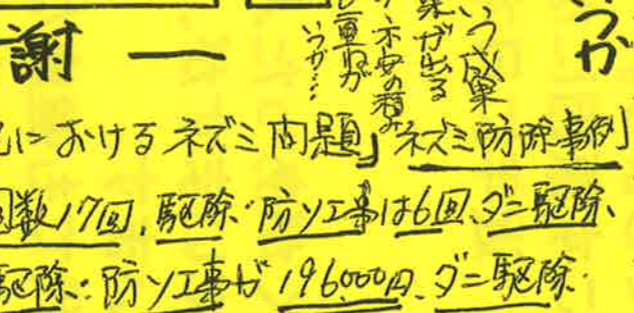 謝 ―
いつか
いう成果
果が出る
不安の積み
重ねが
いつか…
におけるネズミ問題」ネズミ防除事例
回数17回、駆除・防ソ工事は6回、ダニ駆除、
駆除・防ソ工事が196,000円、ダニ駆除・